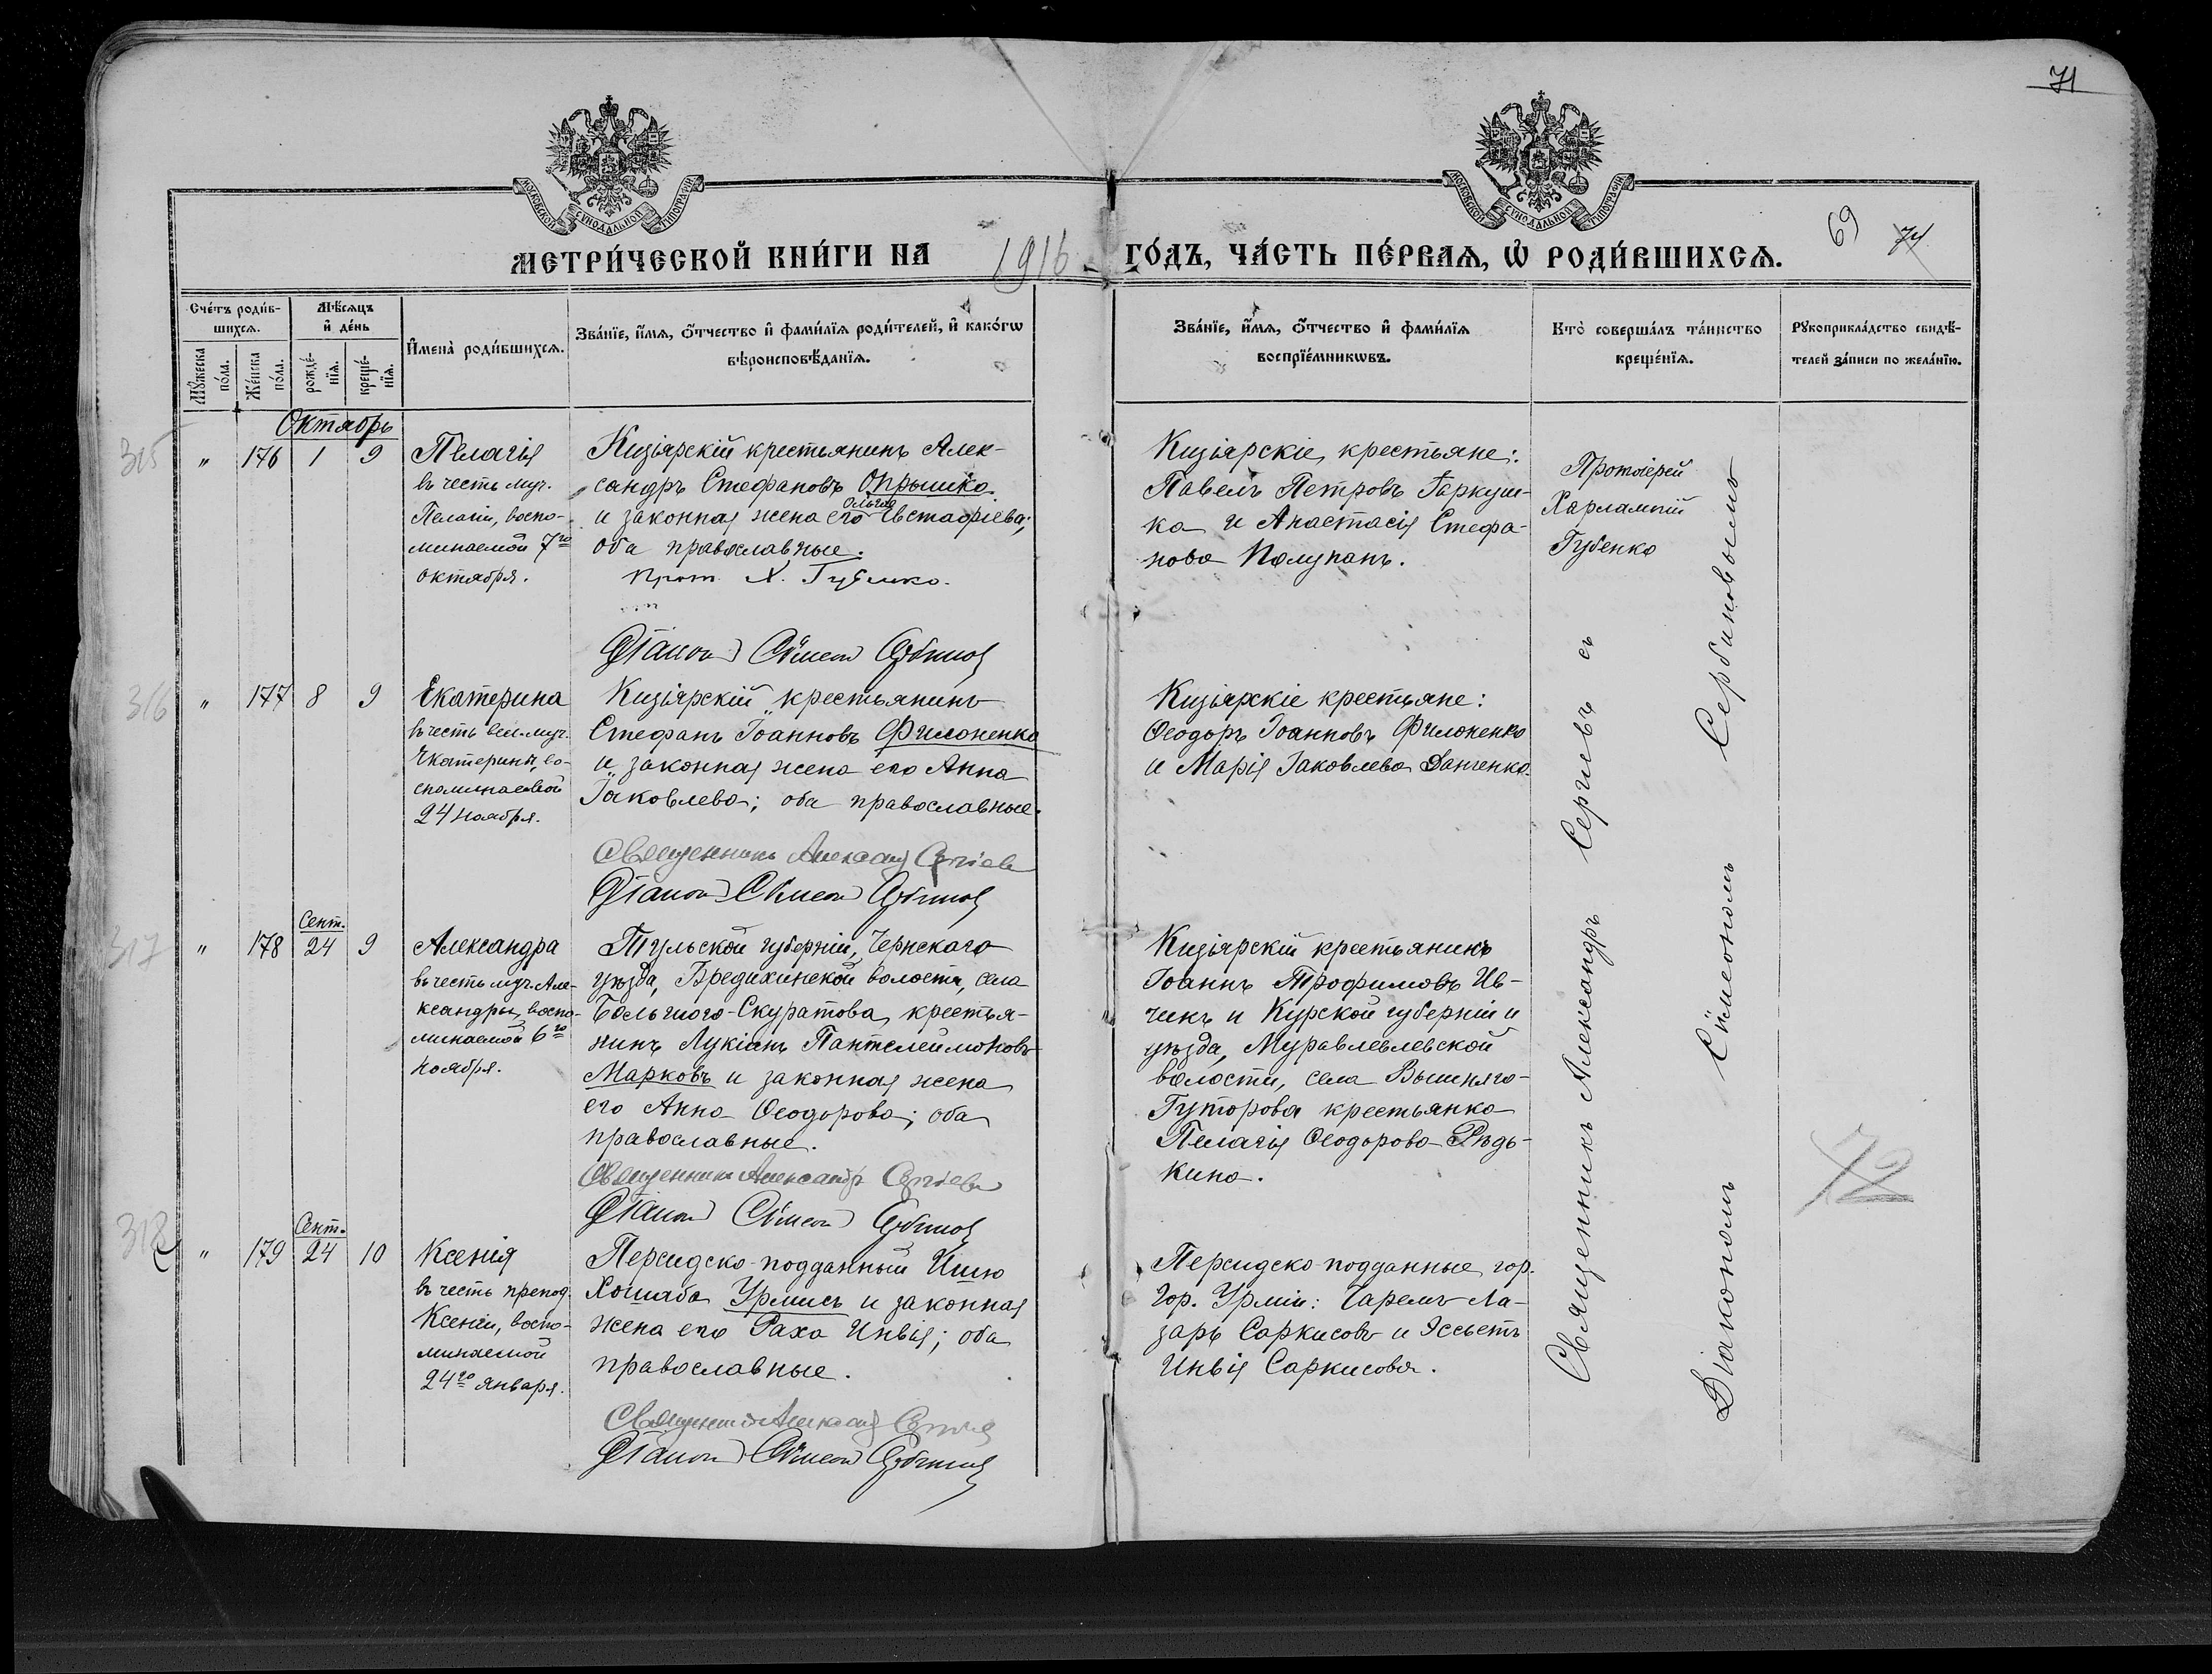 71
МОСКОВСКОЙ СѴНОДАЛЬНОЙ ТИПОГРАФІИ
МОСКОВСКОЙ СѴНОДАЛЬНОЙ ТИПОГРАФІИ
69 74
МЕТРИ́ЧЕСКОЙ КНИ́ГИ НА 1916 ГО́ДЪ, ЧА́СТЬ ПЕ́РВАѦ, Ѡ҆ РОДИ́ВШИХСѦ.
Сче́тъ роди́в-
шихсѧ.
Мꙋ́жеска по́ла.
Же́нска по́ла.
Мѣ́сѧцъ
и҆ де́нь
рожде́-
нїѧ.
креще́-
нїѧ.
И҆мена̀ роди́вшихсѧ.
Зва́нїе, и҆́мѧ, ѻ҆́тчество и҆ фами́лїѧ роди́телей, и҆ како́гѡ
вѣроисповѣ́данїѧ.
Зва́нїе, и҆́мѧ, ѻ҆́тчество и҆ фами́лїѧ
воспрїе́мникѡвъ.
Кто̀ соверша́лъ та́инство
креще́нїѧ.
Рꙋкоприкла́дство свидѣ́-
телей за́писи по жела́нїю.
Октябрь
315 " 176 1 9
Пелагія
въ честь муч.
Пелагіи, воспо-
минаемой 7го
октября.
Кизіярскій крестьянинъ Алек-
сандръ Стефановъ Опрышко
Ольга
и законная жена его Евстафіева;
оба православные.
Прот. Х. Губенко.
Діаконъ Сѵмеонъ Сербиновъ
Кизіярскіе крестьяне:
Павелъ Петровъ Гаркуш-
ка и Анастасія Стефа-
нова Полупанъ.
Протоіерей
Харлампій
Губенко
316 " 177 8 9
Екатерина
въ честь вел-муч.
Екатерины, во-
споминаемой
24 ноября.
Кизіярскій крестьянинъ
Стефанъ Іоанновъ Филоненко
и законная жена его Анна
Іаковлева; оба православные.
Священникъ Александръ Сергіевъ
Діаконъ Сѵмеонъ Сербиновъ
Кизіярскіе крестьяне:
Ѳеодоръ Іоанновъ Филоненко
и Марія Іаковлева Данченко.
317 " 178 Сент. 24 9
Александра
въ честь муч. Але-
ксандры, воспо-
минаемой 6го
ноября.
Тульской губерніи, Чернскаго
уѣзда, Бредихинской волости, села
Большого-Скуратова, крестья-
нинъ Лукіанъ Пантелеймоновъ
Марковъ и законная жена
его Анна Ѳеодорова; оба
православные.
Священникъ Александръ Сергіевъ
Діаконъ Сѵмеонъ Сербиновъ
Кизіярскій крестьянинъ
Іоаннъ Трофимовъ Ив-
ченъ и Курской губерніи и
уѣзда, Муравлевлевской
волости, села Вышняго-
Гуторова крестьянка
Пелагія Ѳеодорова Рѣдь-
кина.
318 " 179 Сент. 24 10
Ксенія
въ честь препод.
Ксеніи, воспо-
минаемой
24го января.
Персидско-подданный Ишо
Хошаба Урмисъ и законная
жена его Раха Инвія; оба
православные.
Священникъ Александръ Сергіевъ
Діаконъ Сѵмеонъ Сербиновъ
Персидско-подданные, гор.
гор. Урміи: Чарелъ Ла-
зарь Саркисовъ и Эссьетъ
Инвія Саркисова.
Священникъ Александръ Сергіевъ съ
Діакономъ Сѵмеономъ Сербиновымъ
72